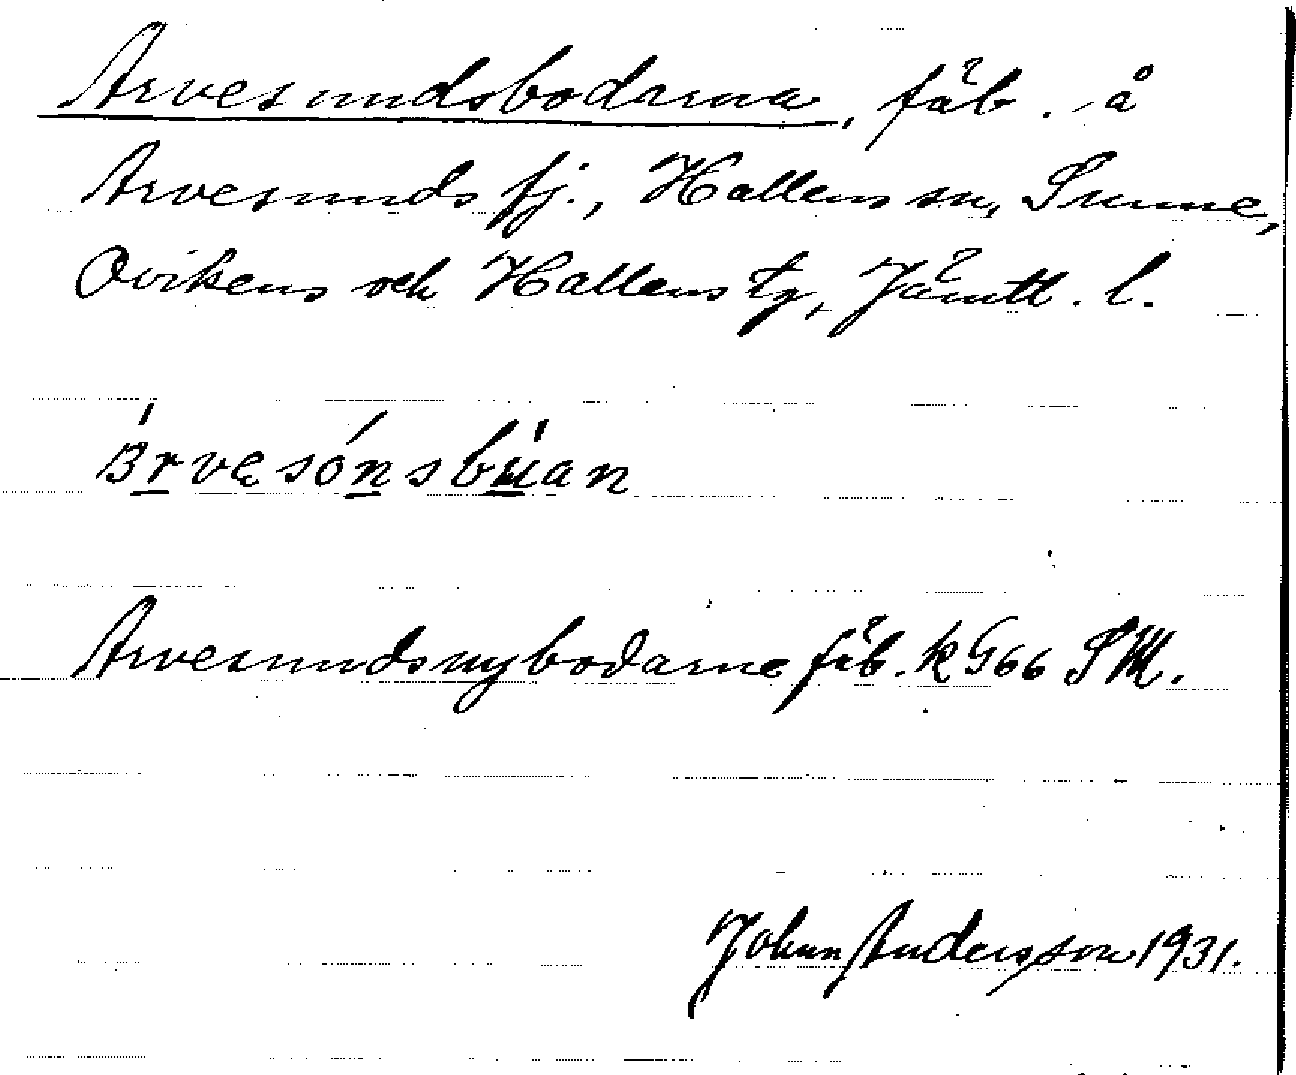 Arvesundsbodarna, fäb. å
Arvesunds fj., Hallens sn, Sunne,
Ovikens och Hallens tg, Jämtl. l.
ɜ́rvesónsbúan
Arvesundsnybodarne fäb. k G66 SM.
Johan Andersson 1931.